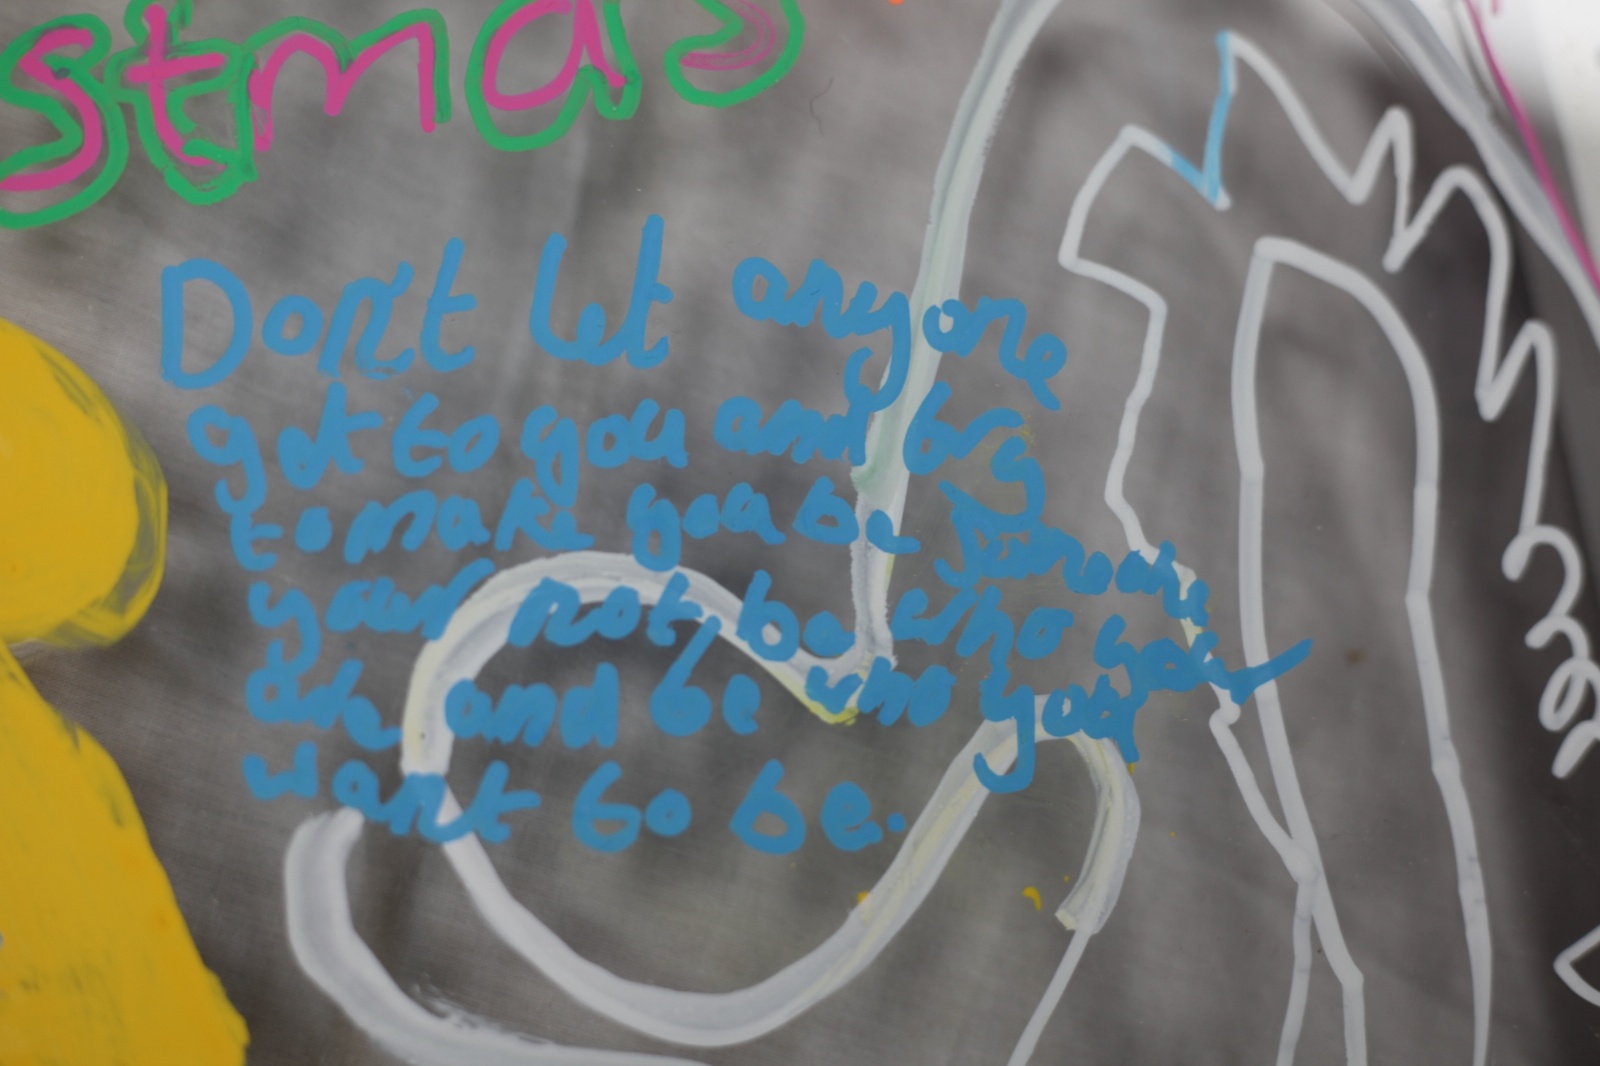 stmas
Don't let anyone
get to you and try
to make you be someone
your not, be who you
are and be who you
want to be.